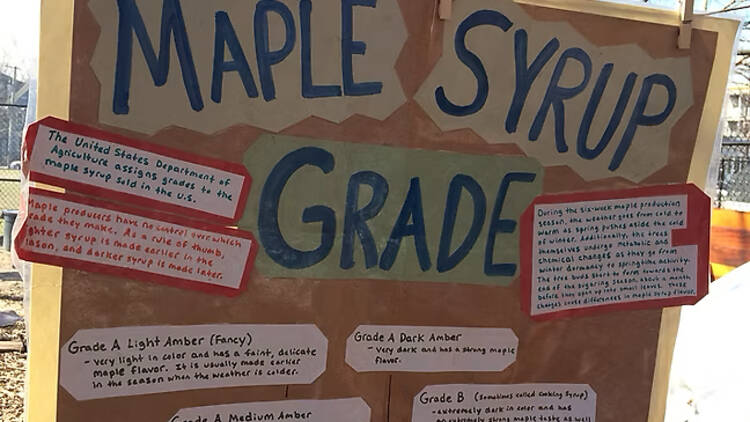 MAPLE SYRUP
GRADE
The United States Department of
Agriculture assigns grades to the
maple syrup sold in the U.S.
Maple producers have no control over which
grade they make. As a rule of thumb,
lighter syrup is made earlier in the
season, and darker syrup is made later.
During the six-week maple production
season, the weather goes from cold to
warm as spring pushes aside the cold
of winter. Additionally, the trees
themselves undergo metabolic and
chemical changes as they go from
winter dormancy to springtime activity.
The tree buds start to form towards the
end of the sugaring season, about a month
before they open up into small leaves. These
changes cause differences in maple syrup flavor.
Grade A Light Amber (Fancy)
- very light in color and has a faint, delicate
maple flavor. It is usually made earlier
in the season when the weather is colder.
Grade A Dark Amber
- very dark and has a strong maple
flavor.
Grade A Medium Amber
Grade B (sometimes called cooking syrup)
- extremely dark in color and has
an extremely strong maple taste as well